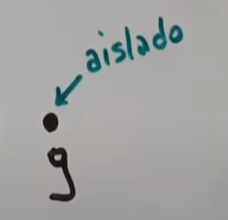 aislado
g